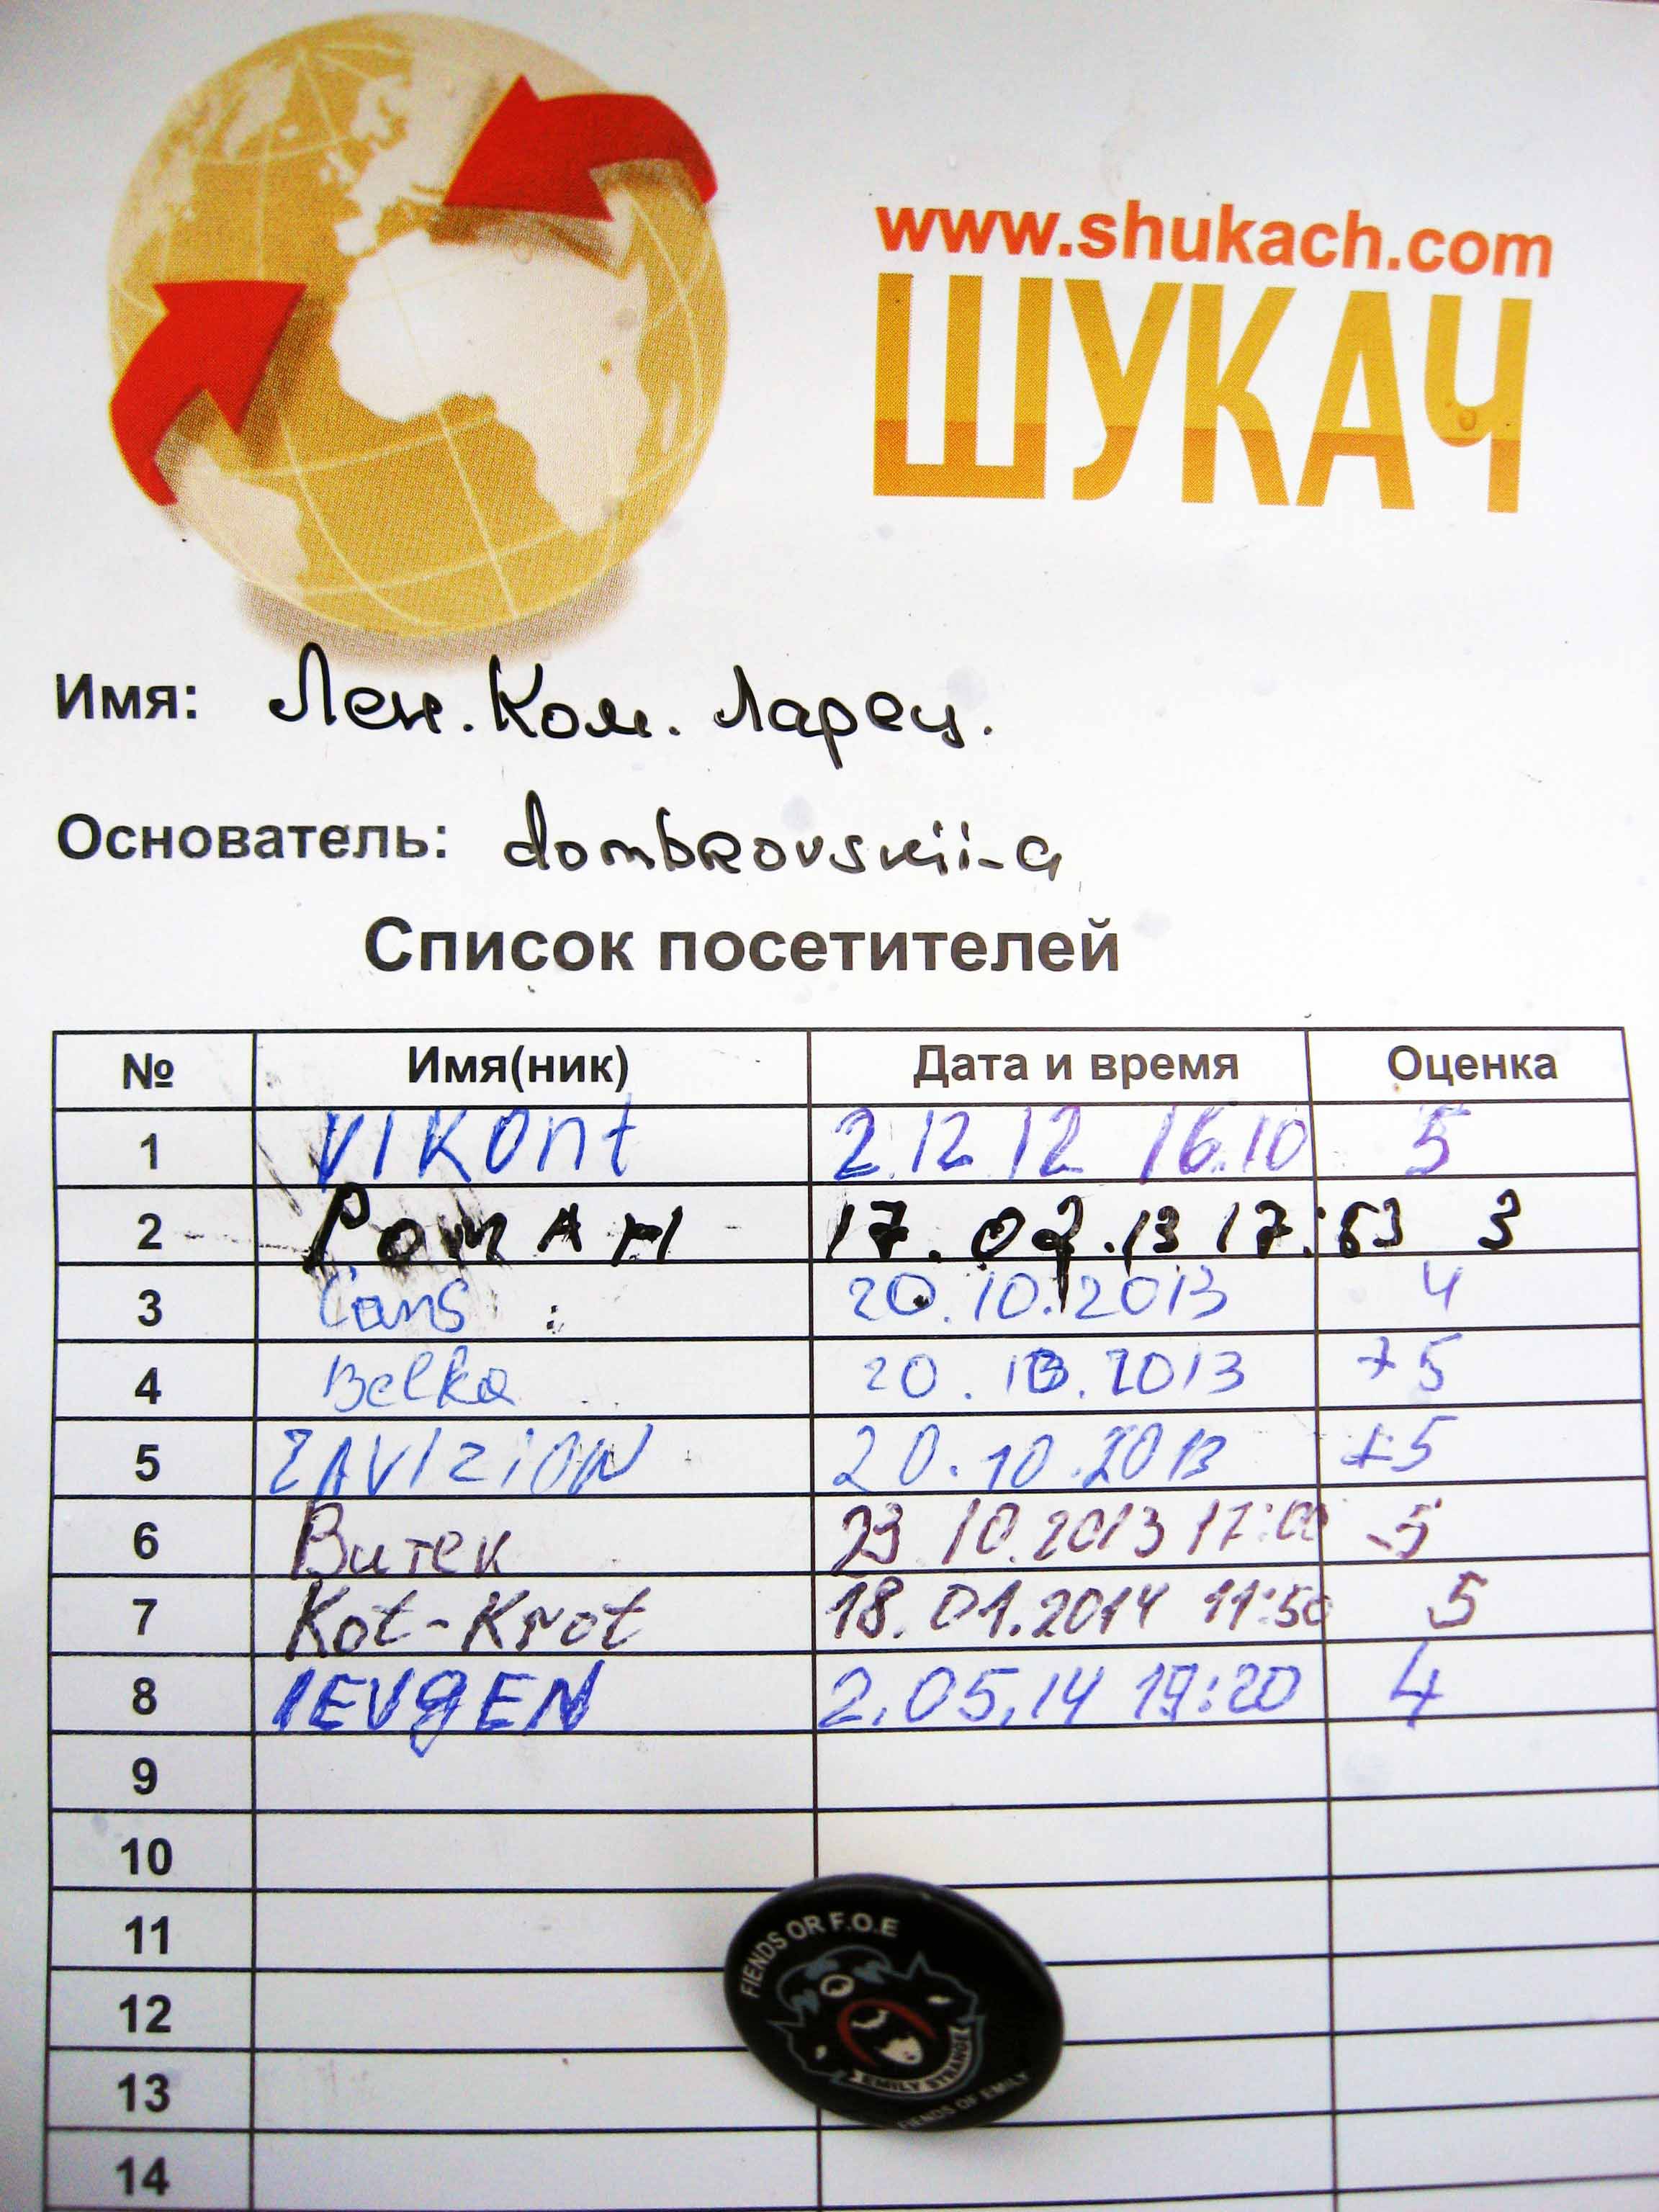 www.shukach.com
ШУКАЧ
Имя: Лен. Ком. Ларец.
Основатель: dombrovskii-a
Список посетителей
№ Имя(ник) Дата и время Оценка
1 VIKOnt 2.12 12 16.10 5
2 РОМАН 17.02.13 17:53 3
3 Cans 20.10.2013 4
4 Belka 20.10.2013 +5
5 ZAVIZION 20.10.2013 +5
6 Витек 23 10.2013 17:00 5
7 Kot-Krot 18.01.2014 11:50 5
8 IEVgEN 2.05.14 19:20 4
9
10
11
12
13
14
FIENDS OR F.O.E
EMILY STRANGE
FIENDS OF EMILY